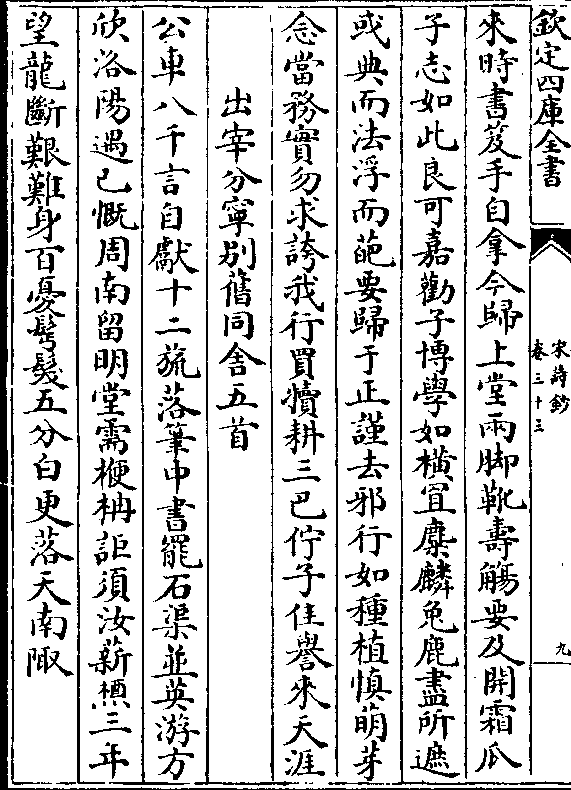 欽定四庫全書
宋詩鈔
卷三十三
九
來時書笈手自拿今歸上堂兩脚靴壽觴要及開霜瓜
子志如此良可嘉勸子博學如橫罝麋麟兔鹿盡所遮
或典而法浮而葩要歸于正謹去邪行如種植慎萌芽
念當務實勿求誇我行買犢耕三巴佇子佳譽來天涯
出宰分寧别舊同舍五首
公車八千言自獻十二旒落筆中書罷石渠並英游方
欣洛陽遇已慨周南留明堂需楩柟詎須汝薪槱三年
望龍斷艱難身百憂髩髮五分白更落天南陬